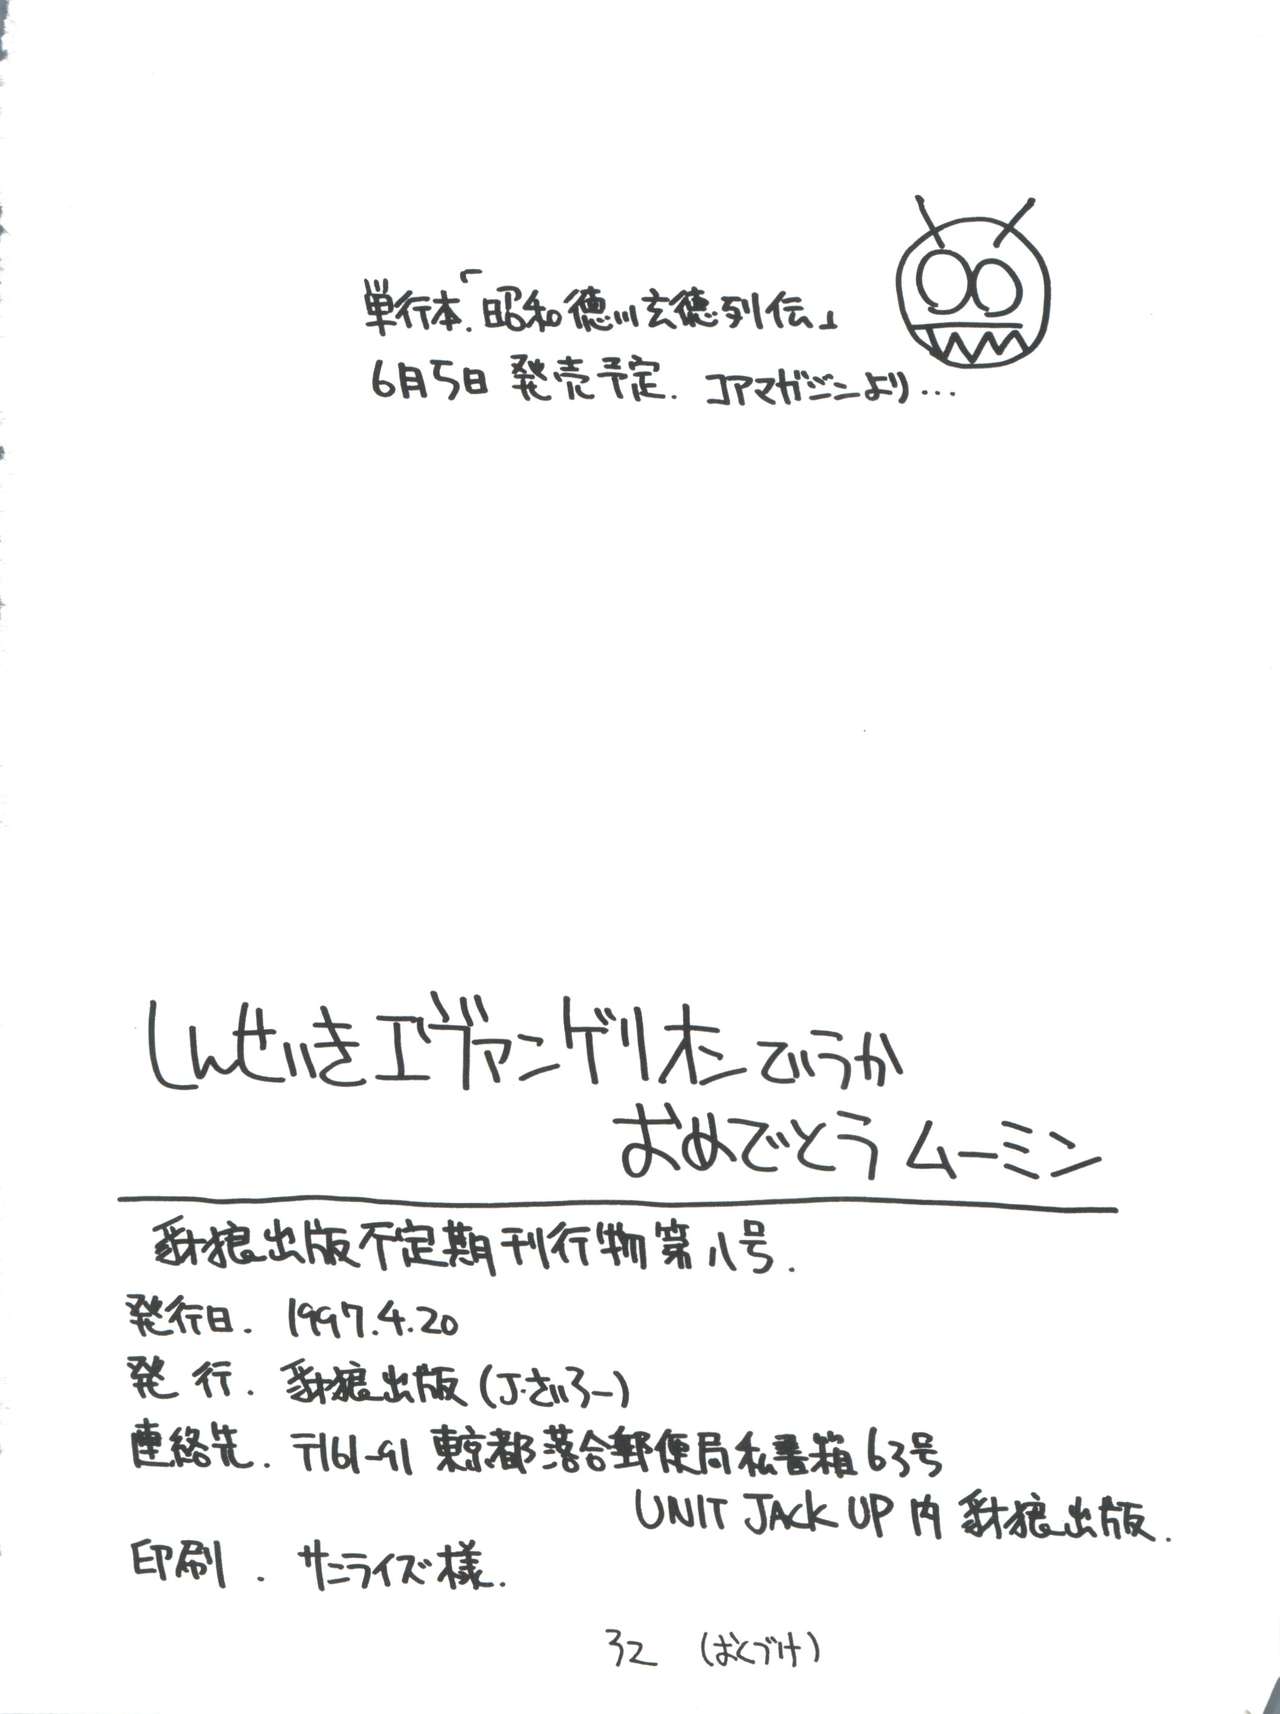 単行本.「昭和徳川玄徳列伝」
6月5日 発売予定. コアマガジンより...
しんせいきエヴァンゲリオンでいうか
おめでとう ムーミン
豺狼出版不定期刊行物第八号.
発行日. 1997.4.20
発 行. 豺狼出版(J.さいろー)
連絡先. 〒161-91 東京都落合郵便局私書箱63号
UNIT JACK UP 内 豺狼出版.
印刷. サンライズ様.
32 (おくづけ)